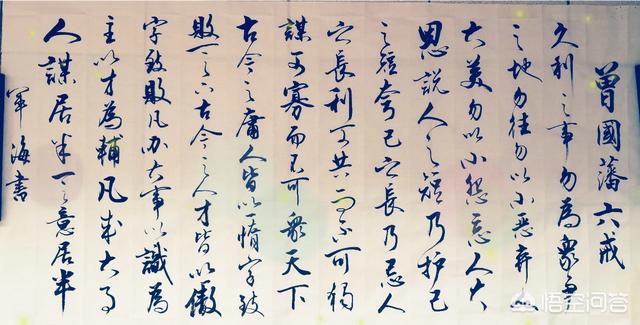 曾國藩六戒
久利之事勿為衆争
之地勿往勿以小惡弃人
大美勿以小怨忘人大
恩説人之短乃护己
之短夸己之長乃忌人
之長利可共而不可獨
謀可寡而不可衆天下
古今之庸人皆以一惰字致
敗天下古今之人才皆以傲
字致敗凡办大事以識為
主以才為輔凡成大事
人謀居半天意居半
军海書
悟空问答